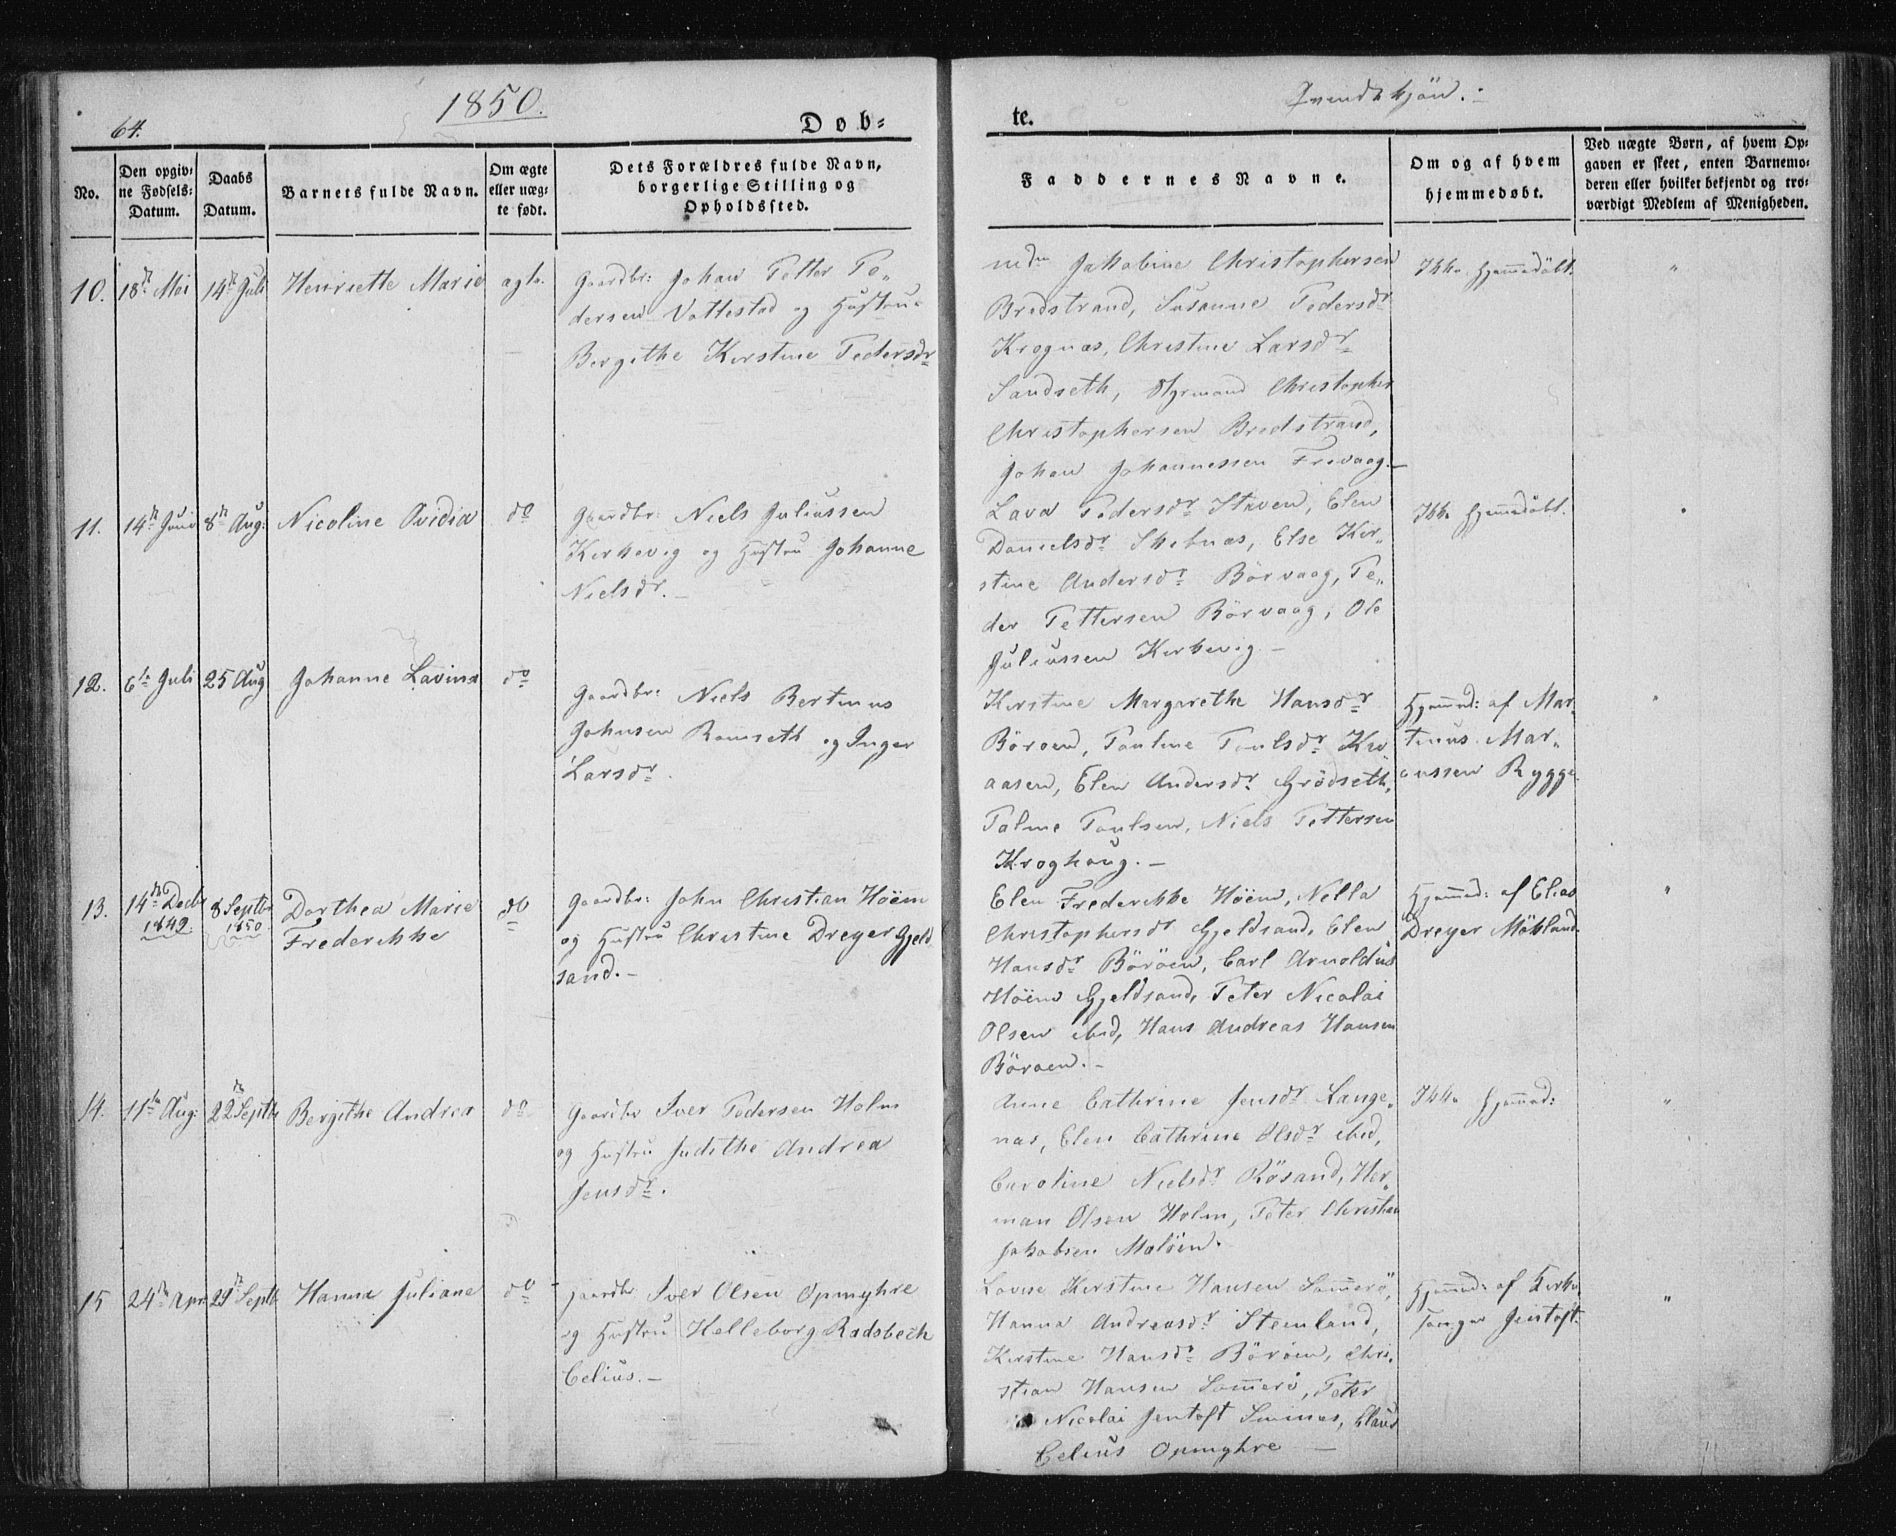 64.
1850.
Døb-
te.
Qvindekjön.
No.
Den opgiv-
ne Fødsels-
Datum.
Daabs
Datum.
Barnets fulde Navn.
Om ægte
eller uæg-
te født.
Dets Forældres fulde Navn,
borgerlige Stilling og
Opholdssted.
Faddernes Navne.
Om og af hvem
hjemmedøbt.
Ved uægte Børn, af hvem Op-
gaven er skeet, enten Barnemo-
deren eller hvilket bekjendt og tro-
værdigt Medlem af Menigheden.
10. 18de Mai 14de Juli Henriette Marie ægte.
Gaardbr: Johan Petter Pe-
dersen Vottestad og Hustru
Bergithe Kirstine Pedersdr
Jakobine Christophersen
Bredstrand, Susanne Pedersdr
Krognæs, Christine Larsdr
Sandseth, Styrmand Christopher
Christophersen Bredstrand,
Johan Johannessen Frevaag.-
Ikke hjemmedöbt.
"
11. 14de Juni 8de Aug: Nicoline Ovidia do
Gaardbr: Niels Juliussen
Kirkevig og Hustru Johanne
Nielsdr.-
Lava Pedersdr Staven, Elen
Danielsdr Skibnæs, Else Kir-
stine Andersdr Börvaag, Pe-
der Pettersen Börvaag, Ole
Juliussen Kirkevig.-
Ikke hjemmedöbt.
"
12. 6te Juli 25 Aug Johanne Lavina do
Gaardbr: Niels Bertinus
Johnsen Romseth og Inger
Larsdr.
Kirstine Margarethe Hansdr
Böröen, Pauline Paulsdr Kro-
aasen, Elen Andersdr Grödseth,
Palme Paulsen, Niels Pettersen
Kroghaug.-
Hjemmed: af Mar-
tinus Mar-
iussen Rygge
"
13. 14de Decbr 1849. 8 Septbr 1850. Dorthea Marie
Frederikke do
Gaardbr: John Christian Höem
og Hustru Christine Dreyer Gjeld-
sand.-
Elen Frederikke Höem, Nella
Christophersdr Gjeldsand, Elen
Hansdr Böröen, Carl Arnoldus
Höem Gjeldsand, Peter Nicolai
Olsen ibid, Hans Andreas Hansen
Böröen.-
Hjemmed: af Elias
Dreyer Mökland
"
14. 11te Aug: 22de Septbr Bergithe Andrea do
Gaardbr Iver Pedersen Holm
og Hustru Judithe Andrea
Jensdr.
Anne Cathrine Jensdr Lange-
næs, Elen Cathrine Olsdr ibid,
Caroline Nielsdr Rösand, Her-
man Olsen Holm, Peter Christian
Jakobsen Malöen.
Ikke hjemmed:
"
15 24de Apr: 29de Septbr Hanna Juliane do
Gaardbr Iver Olsen Opmyhre
og Hustru Helleborg Rodsbech
Celius.-
Lovise Kirstine Hansen Sommerö,
Hanna Andreasdr Steinland,
Kirstine Hansdr Böröen, Chri-
stian Hansen Sommerö, Peter
Nicolai Jentoft Smines, Claus
Celius Opmyhre -
Hjemmed: af Kirke-
sanger Jentoft.
"